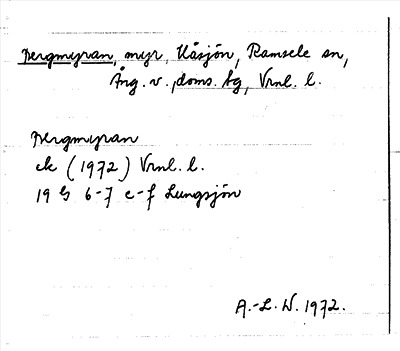 Bergmyran, myr, Uåsjön, Ramsele sn,
Ång. v., doms. tg, Vrnl. l.
Bergmyran
ek (1972) Vrnl. l.
19 G 6-7 e-f Lungsjön
A.-L. W. 1972.